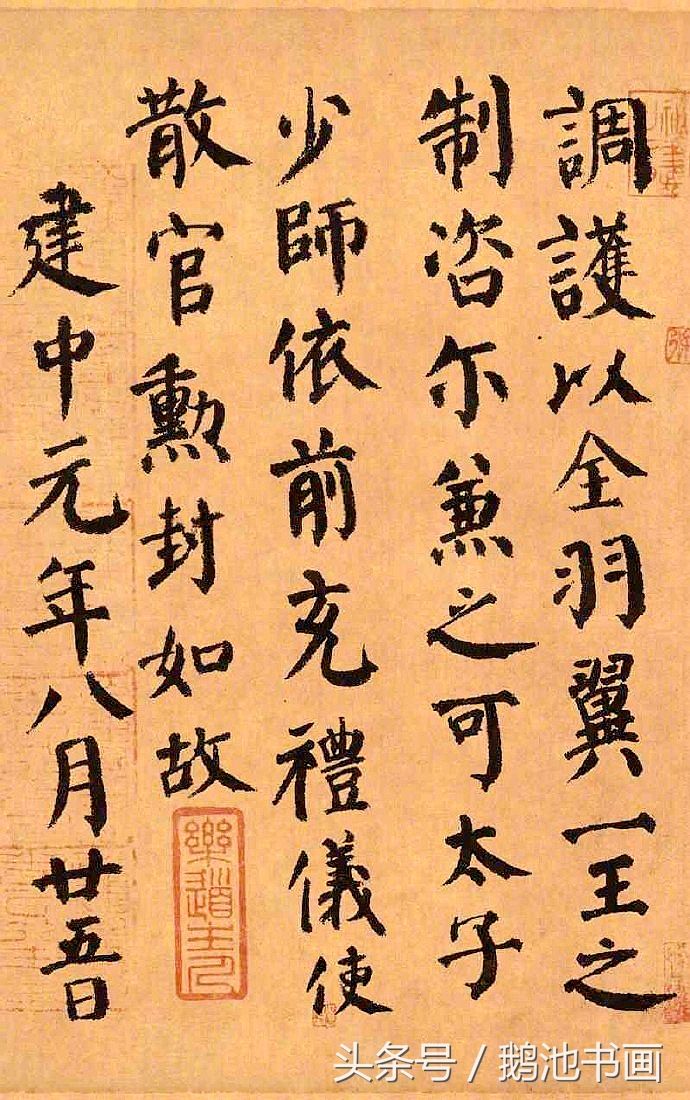 調護以全羽翼一王之
制咨尔兼之可太子
少師依前充禮儀使
散官勲封如故
建中元年八月廿五日
頭条号 / 鹅池书画